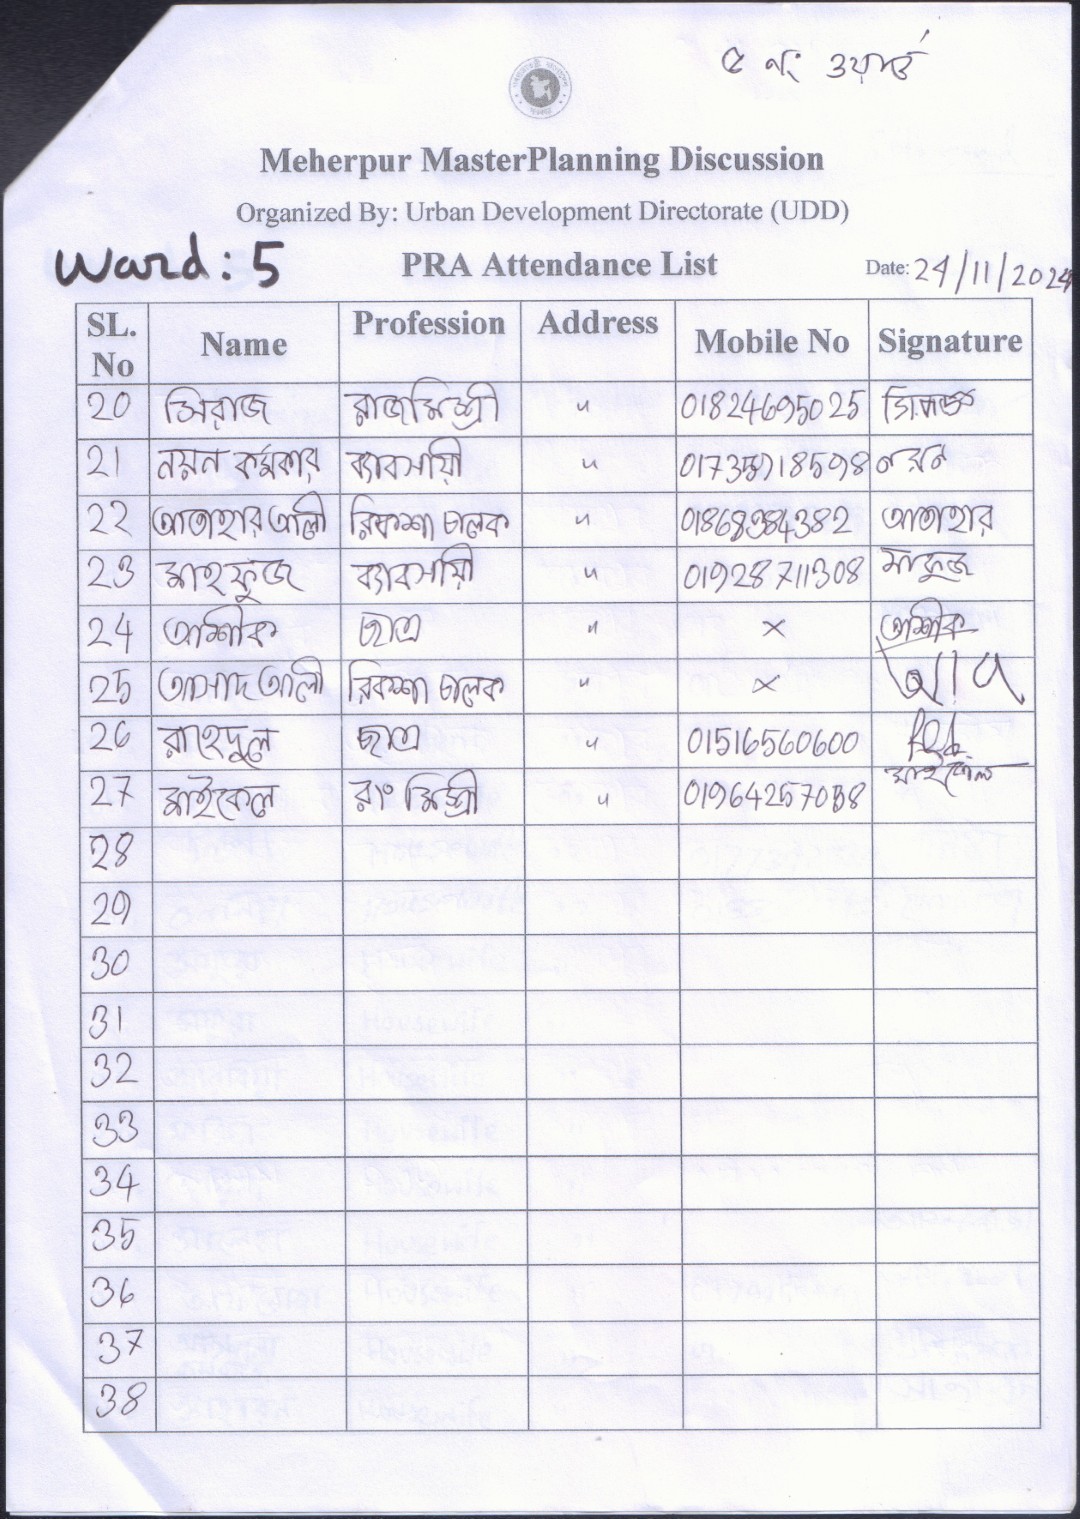 ৫ নং ওয়ার্ড
Meherpur MasterPlanning Discussion
Organized By: Urban Development Directorate (UDD)
Ward: 5 PRA Attendance List Date: 24/11/2024
SL. No Name Profession Address Mobile No Signature
20 সিরাজ রাজমিস্ত্রী " 01824695025 সিরাজ
21 নয়ন কর্মকার ব্যাবসায়ী " নয়ন
22 আতাহার আলী রিকশা চালক " আতাহার
23 মাহফুজ ব্যাবসায়ী " 01928711308 মাফুজ
24 আশীক ছাত্র " × আশীক
25 আসাদ আলী রিকশা চালক " ×
26 রাহেদুল ছাত্র " 01516560600
27 মাইকেল রং মিস্ত্রী " মাইকেল
28
29
30
31
32
33
34
35
36
37
38